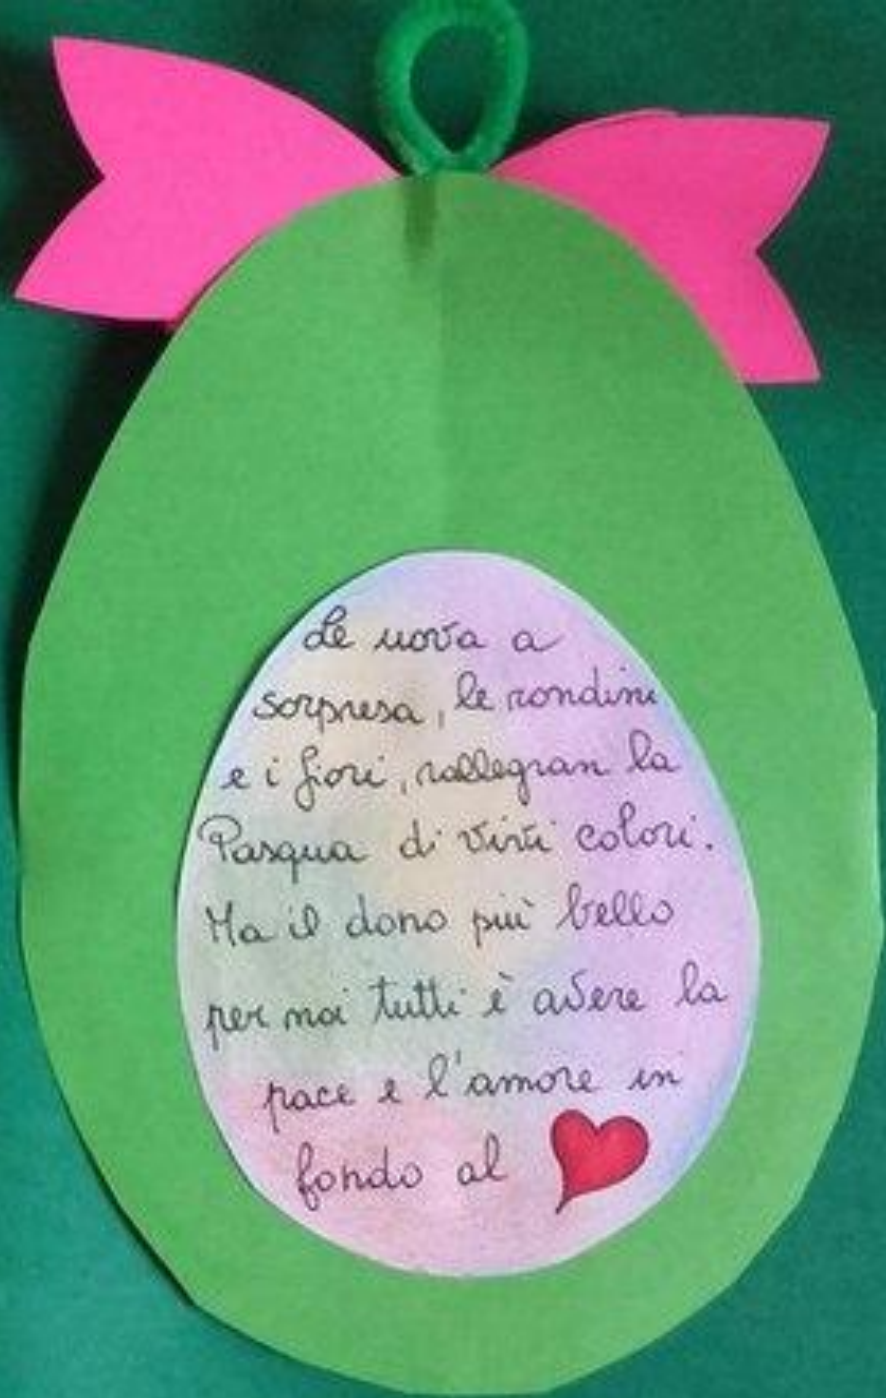 Le uova a
sorpresa, le rondini
e i fiori, rallegran la
Pasqua di vivi colori.
Ma il dono più bello
per noi tutti è avere la
pace e l'amore in
fondo al